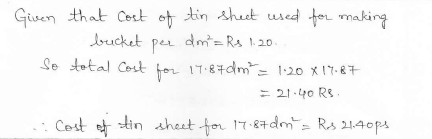 Given that Cost of tin sheet used for making
bucket per dm² = Rs 1.20.
So total Cost for 17.87dm² = 1.20 X 17.87
= 21.40 RS.
∴ Cost of tin sheet for 17.87dm² = Rs 21.40ps